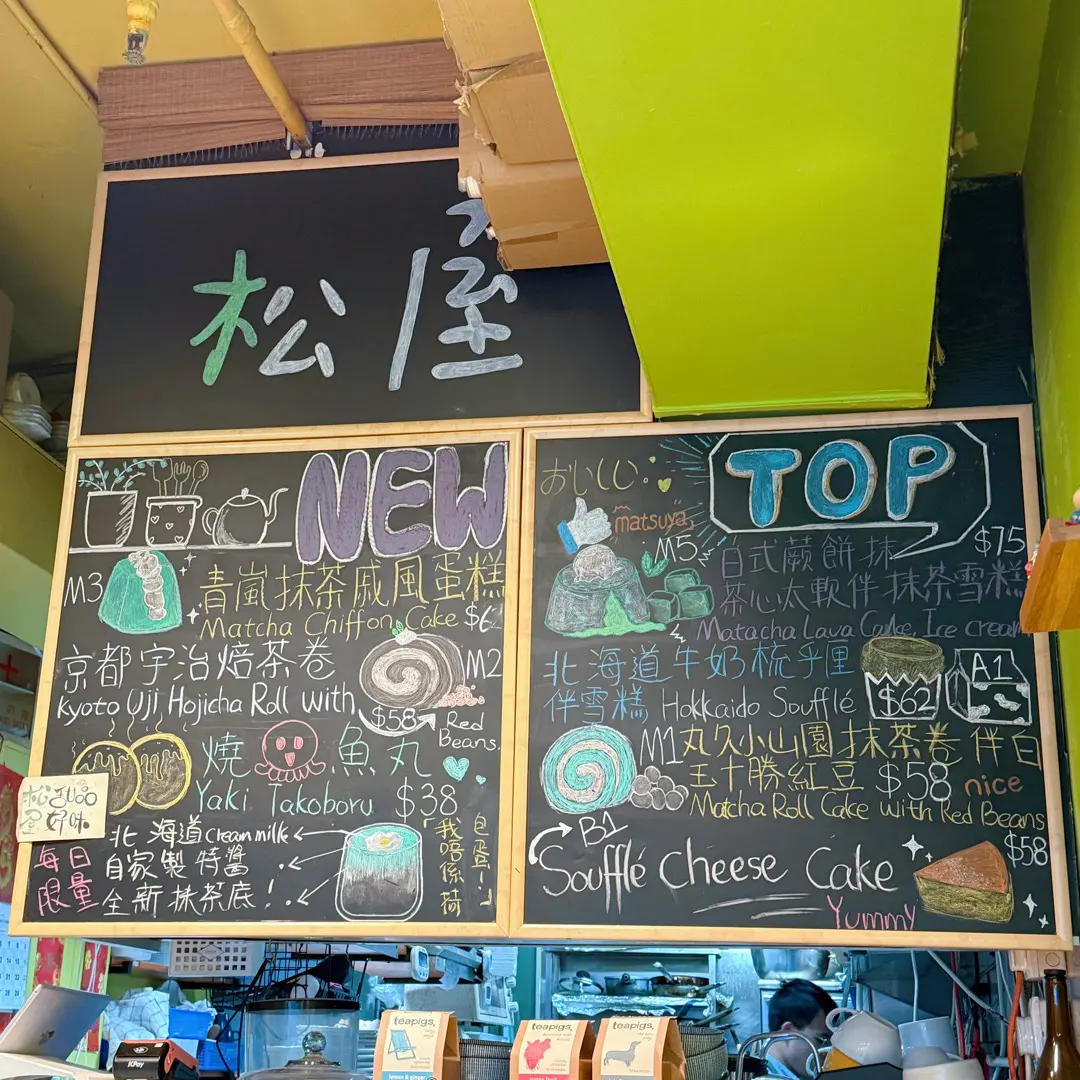 松屋
NEW
M3
青嵐抹茶戚風蛋糕
Matcha Chiffon Cake $6
京都宇治焙茶卷
M2
Kyoto Uji Hojicha Roll with
$58
Red
Beans.
燒 魚丸
Yaki Takoboru $38
松屋
好味
北海道Creammilk
每日
限量
自家製特醬
全新抹茶底!
「我唔係荷
包蛋!」
おいしい
TOP
matsuya
M5
日式蕨餅抹
$75
茶心太軟伴抹茶雪糕
Matacha Lava Cake Ice cream
北海道牛奶梳乎厘
A1
伴雪糕 Hokkaido Soufflé
$62
M1
丸久小山園抹茶卷伴白
玉十勝紅豆 $58 nice
Matcha Roll Cake with Red Beans
B1
$58
Soufflé Cheese Cake
Yummy
teapigs.
lemon & ginger
teapigs.
teapigs.
KPay